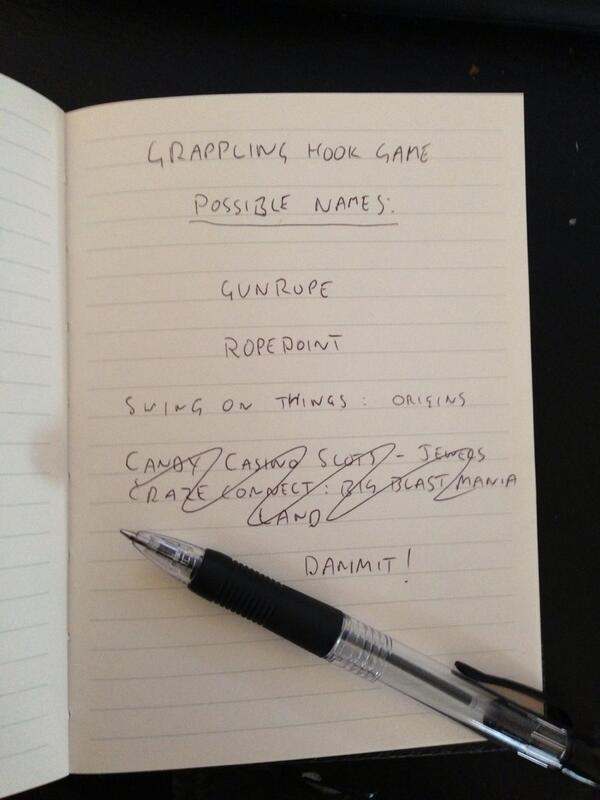 GRAPPLING HOOK GAME
POSSIBLE NAMES:
GUNROPE
ROPEPOINT
SWING ON THINGS: ORIGINS
CANDY CASINO SLOTS - JEWELS
CRAZE CONNECT: BIG BLAST MANIA
LAND
DAMMIT!